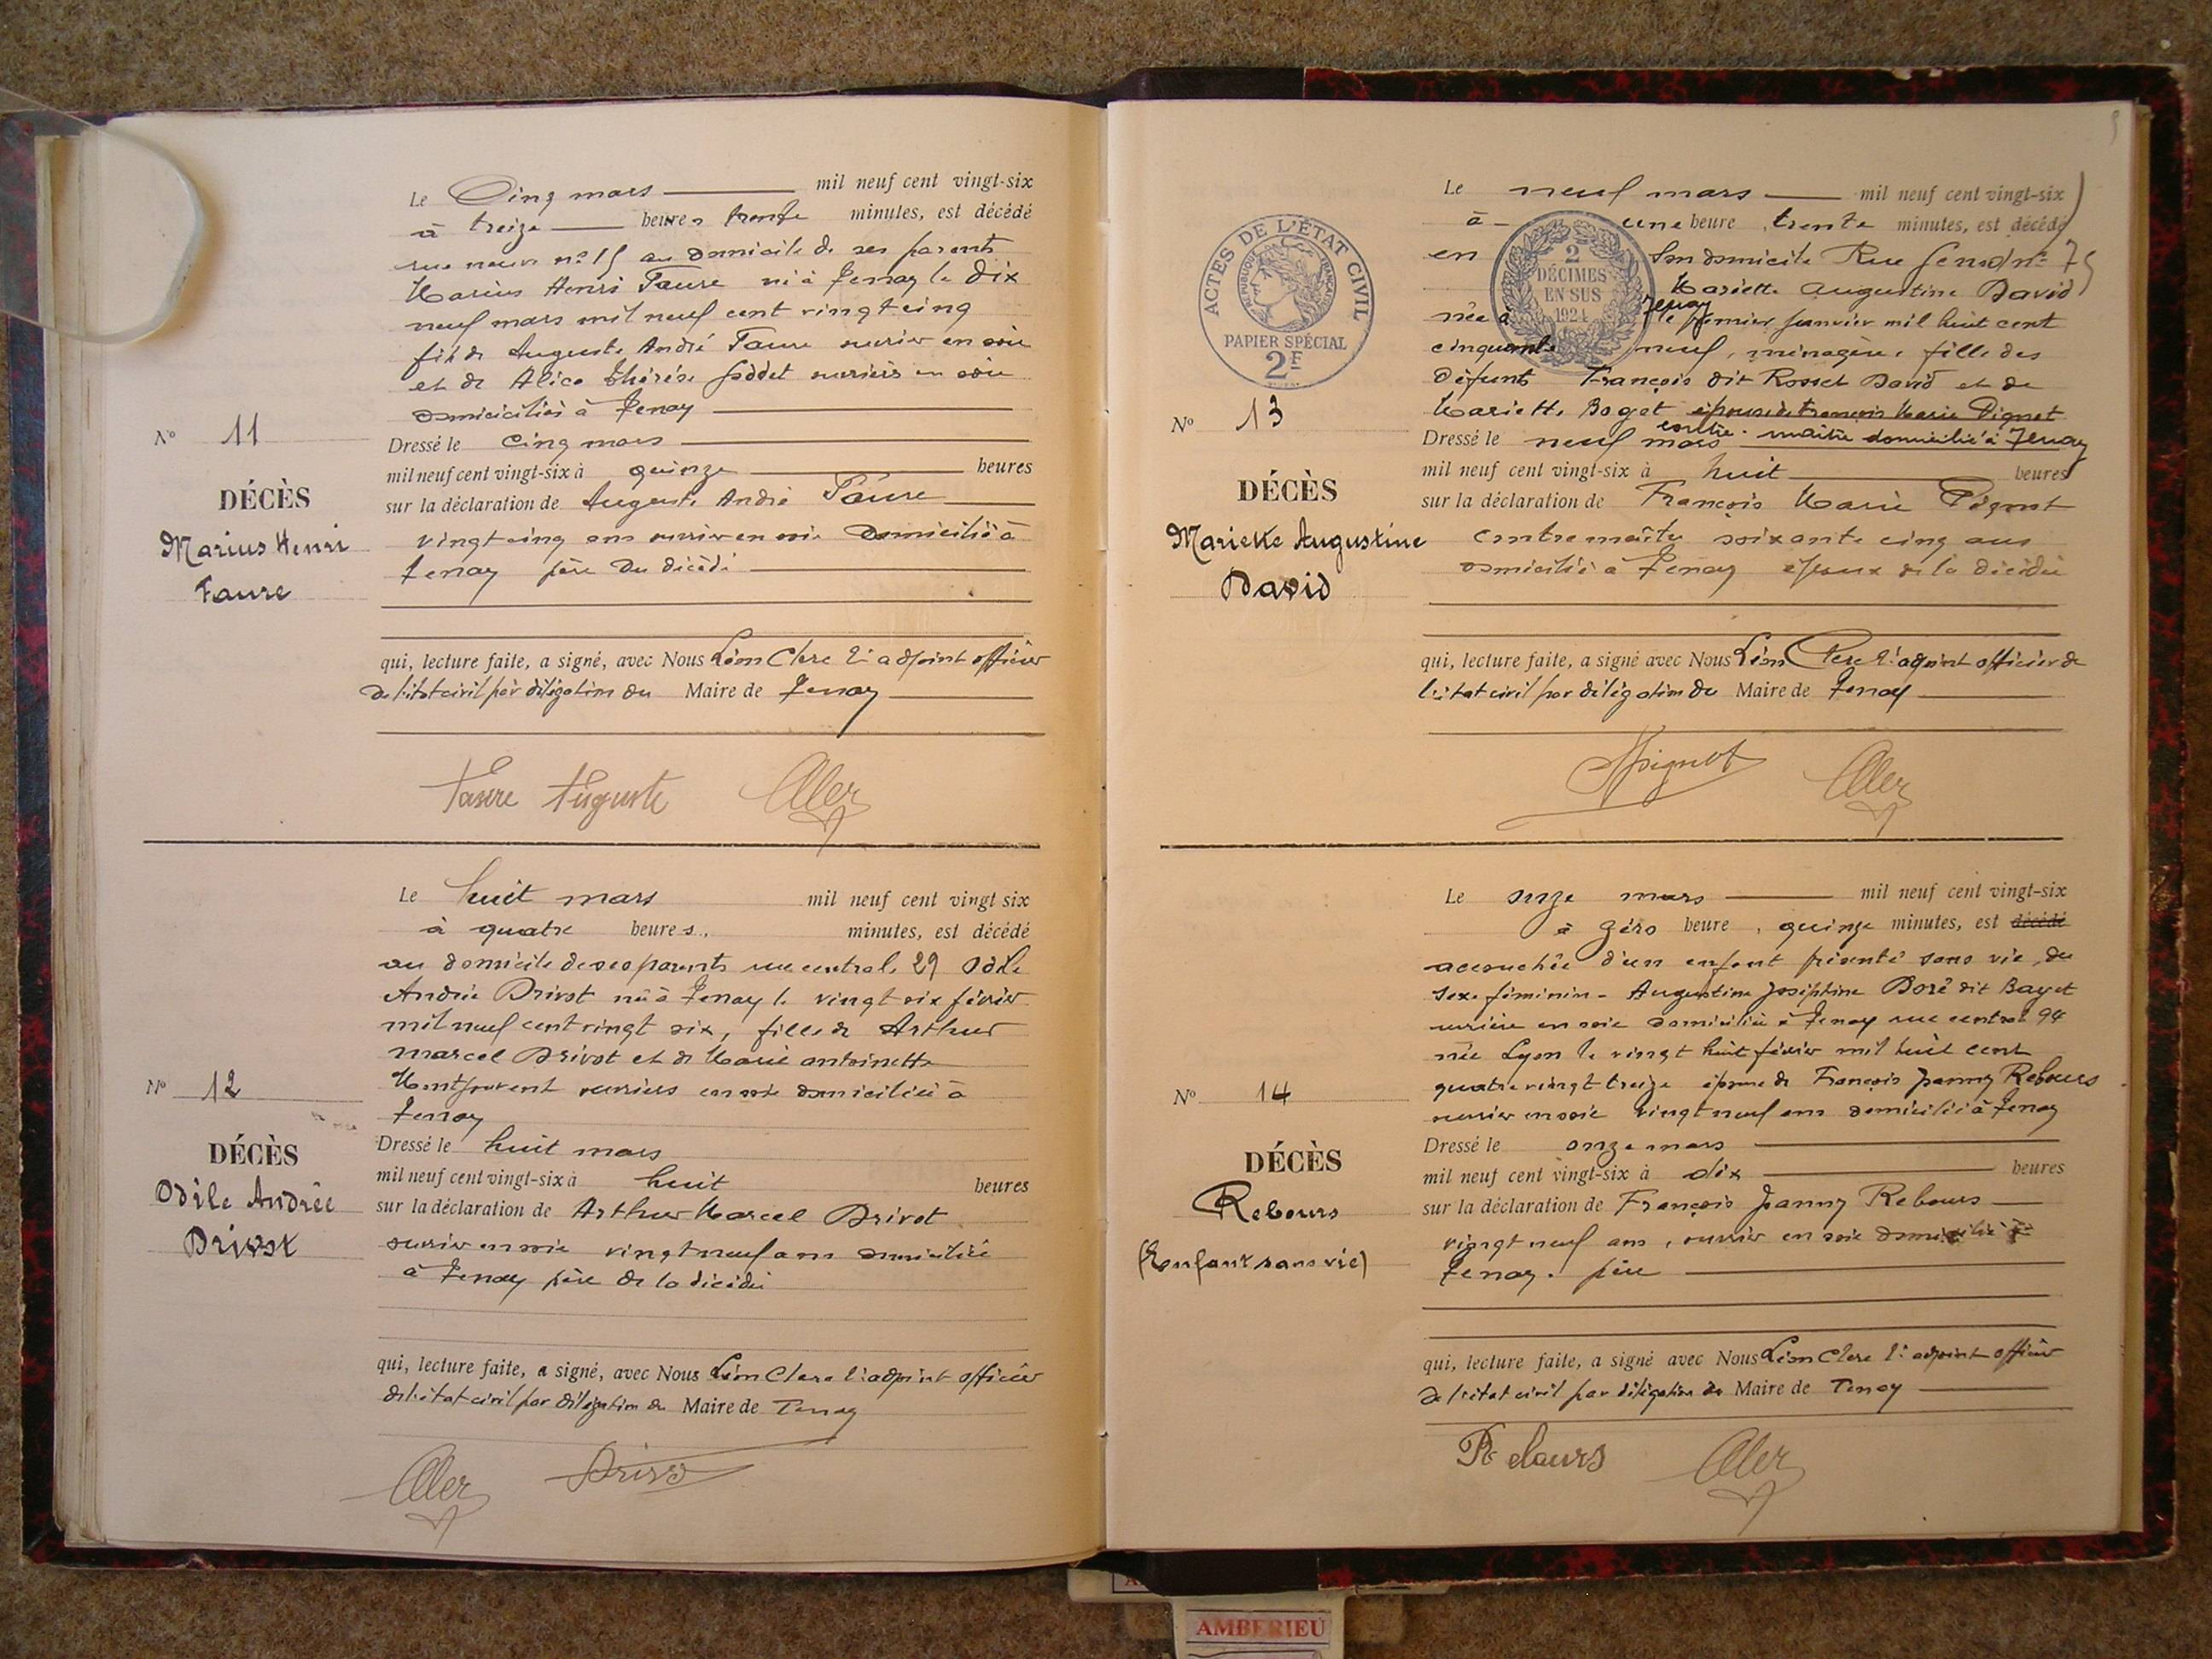 Le Cinq mars mil neuf cent vingt-six
à treize heures trente minutes, est décédé
rue neuve no 15 au domicile de ses parents
Marius Henri Faure né à Tenay le dix
neuf mars mil neuf cent vingt cinq
fils de Auguste André Faure ouvrier en soie
et de Alice Thérèse ouvriers en soie
domiciliés à Tenay
No 11
DÉCÈS
Marius Henri
Faure
Dressé le cinq mars
mil neuf cent vingt-six à quinze heures
sur la déclaration de Auguste André Faure
vingt cinq ans ouvrier en soie domicilié à
Tenay père du décédé
qui, lecture faite, a signé, avec Nous Léon Clerc adjoint officier
de l'état civil par délégation du Maire de Tenay
Faure Auguste
Le huit mars mil neuf cent vingt six
à quatre heures, minutes, est décédé
au domicile de ses parents rue centrale 29 Odile
Andrée Drivot née à Tenay le vingt six février
mil neuf cent vingt six, fille de Arthur
Marcel Drivot et de Marie antoinette
ouvriers en soie domiciliés à
Tenay
No 12
DÉCÈS
Odile Andrée
Drivot
Dressé le huit mars
mil neuf cent vingt-six à huit heures
sur la déclaration de Arthur Marcel Drivot
ouvrier en soie vingt neuf ans domicilié
à Tenay père de la décédée
qui, lecture faite, a signé, avec Nous Léon Clerc adjoint officier
de l'état civil par délégation du Maire de Tenay
ACTES DE L'ÉTAT CIVIL
RÉPUBLIQUE FRANÇAISE
PAPIER SPÉCIAL
2F
2
DÉCIMES
EN SUS
1924
Le neuf mars mil neuf cent vingt-six
à une heure trente minutes, est décédé
en son domicile Rue no 75
Mariette Augustine David
née à Tenay le premier janvier mil huit cent
cinquante neuf, ménagère, fille des
défunts François dit Rosset David et de
Mariette Boget épouse de François Marie Pignot
contre-maître domicilié à Tenay
No 13
DÉCÈS
Mariette Augustine
David
Dressé le neuf mars
mil neuf cent vingt-six à huit heures
sur la déclaration de François Marie Pignot
contremaître soixante cinq ans
domicilié à Tenay époux de la décédée
qui, lecture faite, a signé avec Nous Léon Clerc adjoint officier de
l'état civil par délégation du Maire de Tenay
Pignot
Le onze mars mil neuf cent vingt-six
à zéro heure, quinze minutes, est décédé
accouchée d'un enfant présenté sans vie, du
sexe féminin - Augustine Joséphine Doré dit Bayet
ouvrière en soie domiciliée à Tenay rue centrale 94
née Lyon le vingt huit février mil huit cent
quatre vingt treize épouse de François Janny Rebours
ouvrier en soie vingt neuf ans domicilié à Tenay
No 14
DÉCÈS
Rebours
(Enfant sans vie)
Dressé le onze mars
mil neuf cent vingt-six à dix heures
sur la déclaration de François Janny Rebours
vingt neuf ans, ouvrier en soie domicilié à
Tenay. père
qui, lecture faite, a signé avec Nous Léon Clerc adjoint officier
de l'état civil par délégation du Maire de Tenay
Rebours
AMBERIEU